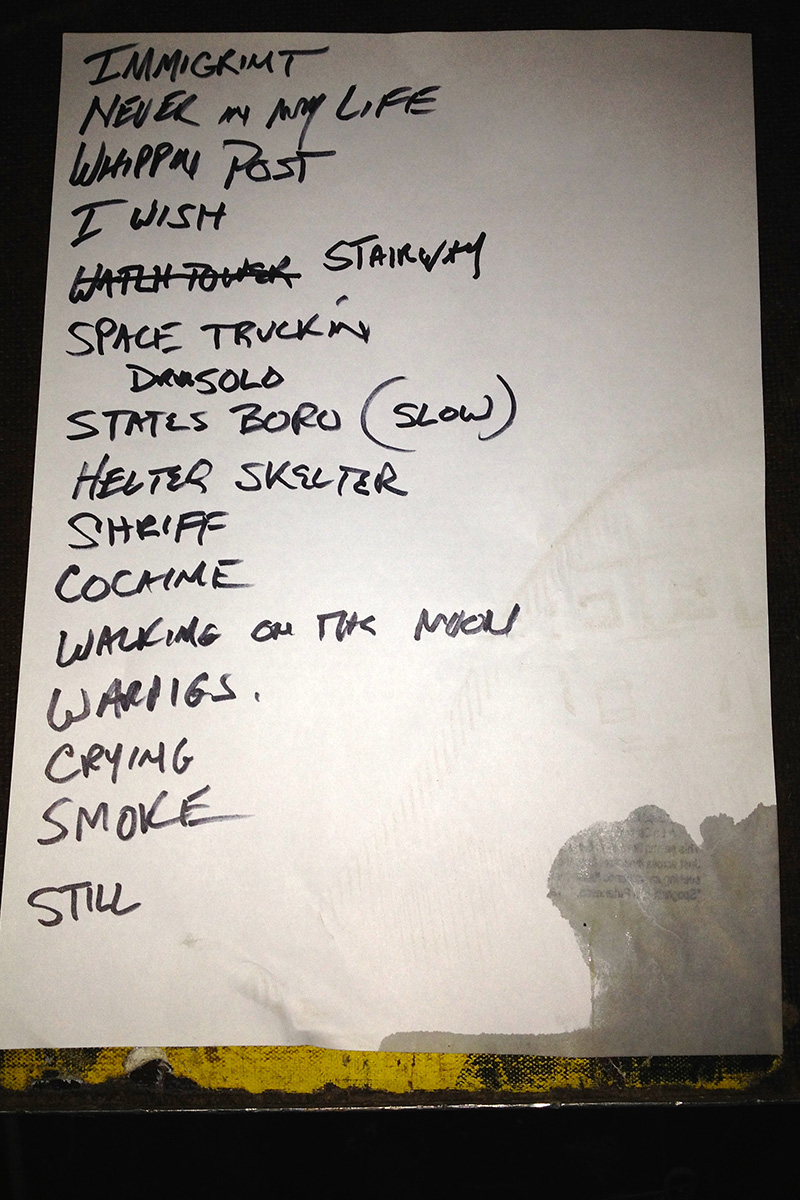 IMMIGRINT
NEVER IN MY LIFE
WHIPPIN POST
I WISH
WATCH TOWER STAIRWAY
SPACE TRUCKIN
DRUMSOLO
STATES BORO (SLOW)
HELTER SKELTER
SHRIFF
COCAINE
WALKING ON THE MOON
WARPIGS.
CRYING
SMOKE
STILL